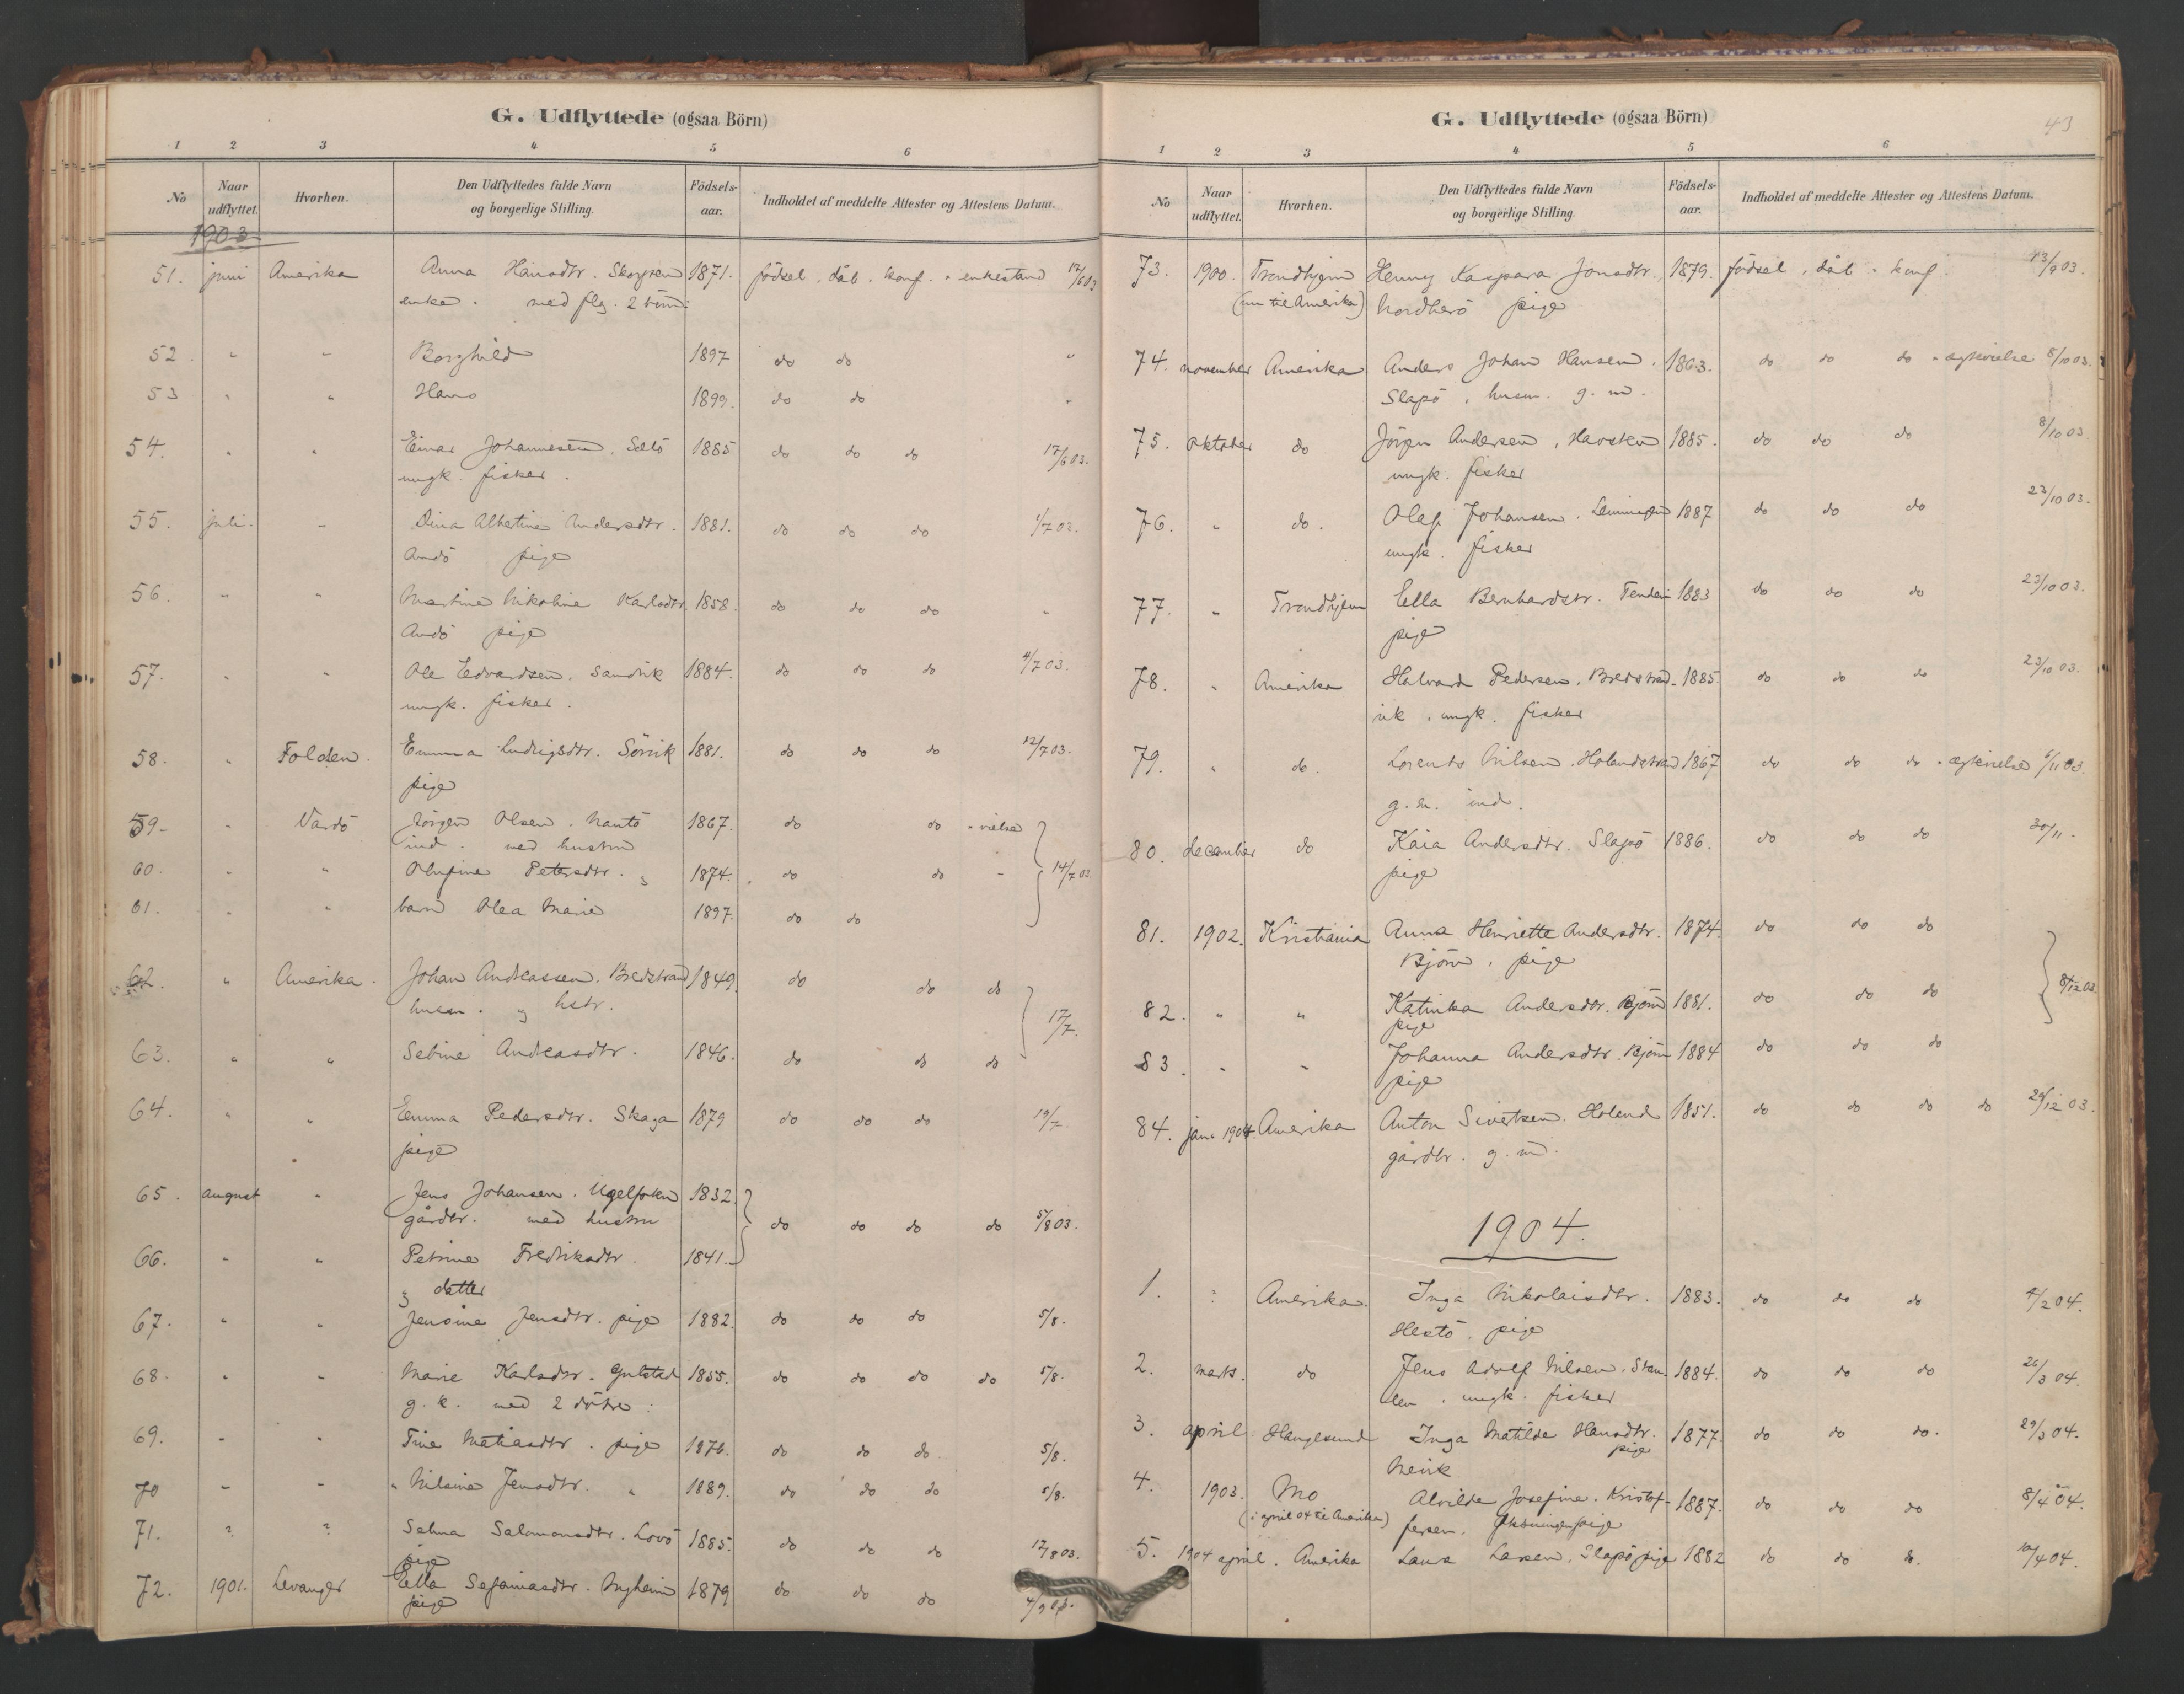 G. Udflyttede (ogsaa Börn)
1 2 3 4 5 6
No Naar udflyttet. Hvorhen. Den Udflyttedes fulde Navn og borgerlige Stilling. Födsels-aar. Indholdet af meddelte Attester og Attestens Datum.
1903
51. juni Amerika Anna Hansdtr. 1871. födsel, dåb, konf. " enkestand 17/6 03
enke. med flg. 2 börn:
52. " " Borghild 1897 do do "
53 " " Hans 1899. do do "
54. " " Einar Johannesen. 1885 do do do 17/6 03.
ungk. fisker.
55. juli. " Dina Albertine Andersdtr. 1881. do do do 1/7 03.
Andö pige
56. " " Martine Nikoline Karlsdtr. 1858. do do do "
Andö pige
57. " " Ole Edvardsen. Sandvik 1884. do do do 4/7 03.
ungk. fisker.
58. " Folden. Emma Ludvigsdtr. Sörvik 1881. do do do 12/7 03.
pige
59. " Vardö Jörgen Olsen. 1867. do do " vielse
ind. med hustru
60. " " Olufine Petersdtr. 1874. do do " 14/7 03
61. " " barn Olea Marie 1897. do do
62. " Amerika. Johan Andreassen. Bredstrand 1849. do do do
husm. og hstr. 17/7.
63. " " Sebine Andreasdtr. 1846. do do do
64. " " Emma Pedersdtr. Skaga 1879 do do do 19/7.
pige
65. august " Jens Johansen. 1832.
gårdbr. med hustru do do do do 5/8 03.
66. " " Petrine Fredriksdtr. 1841.
og datter
67. " " Jensine Jensdtr. pige 1882. do do do 5/8.
68. " " Marie Karlsdtr. 1855. do do do do 5/8.
g. k. med 2 dötre:
69. " " Tine Matiasdtr. pige 1876. do do do 5/8.
70 " " " Nilsine Jensdtr. " 1889. do do do 5/8.
71. ? ? Selma Salomonsdtr. Lovö 1885. do do do 17/8 03.
pige
72. 1901. Levanger Ella Sefaniasdtr. 1879 do do do 4/9 03.
pige
G. Udflyttede (ogsaa Börn)
43
1 2 3 4 5 6
No Naar udflyttet. Hvorhen. Den Udflyttedes fulde Navn og borgerlige Stilling. Födsels-aar. Indholdet af meddelte Attester og Attestens Datum.
73. 1900. Trondhjem Henny Kaspara Jonsdtr. 1879. födsel, dåb " konf. 23/9 03.
(nu til Amerika) Nordherö pige
74. november Amerika Anders Johan Hansen. 1863. do do do " ægtevielse 8/10 03.
Slapö, husm. g. m.
75. oktober do Jörgen Andersen, Havsten 1885. do do do 8/10 03.
ungk. fisker
76. " do. Olaf Johansen. 1887 do do do 23/10 03.
ungk. fisker
77. " Trondhjem Ella Bernhardstr. 1883 do do do 23/10 03.
pige
78. " Amerika Halvard Pedersen. Bredstrand- 1885. do do do 23/10 03.
vik, ungk. fisker
79. " do. Lorents Nilsen. Holandstrand 1867 do do do " ægtevielse 6/11 03.
g. m. ind.
80. december do Kaia Andersdtr. Slapö 1886. do do do 30/11.
pige
81. 1902. Kristiania Anna Henriette Andersdtr. 1874. do do do
Björn, pige
82. " " Katinka Andersdtr. Björn 1881. do do do 8/12 03.
pige
83. " " Johanna Andersdtr. Björn 1884 do do do
pige
84. jan. 1904. Amerika Anton Sivertsen. Holand 1851. do do do do 29/12 03.
gårdbr. g. m.
1904.
1. ? Amerika. Inga Nikolaisdtr. 1883. do do do 4/2 04.
Hestö, pige
2. marts. do Jens Adolf Nilsen. 1884. do do do 26/3 04.
ungk. fisker
3. april. Haugesund Inga Matilde Hansdtr. 1877. do do do. 29/3 04.
pige
4. 1903. Mo Alvilde Josefine Kristof- 1887. do do do 8/4 04.
(i april 04 til Amerika) fersen. pige
5. 1904 april. Amerika Laura Larsen, Slapö pige 1882 do do do. 10/4 04.